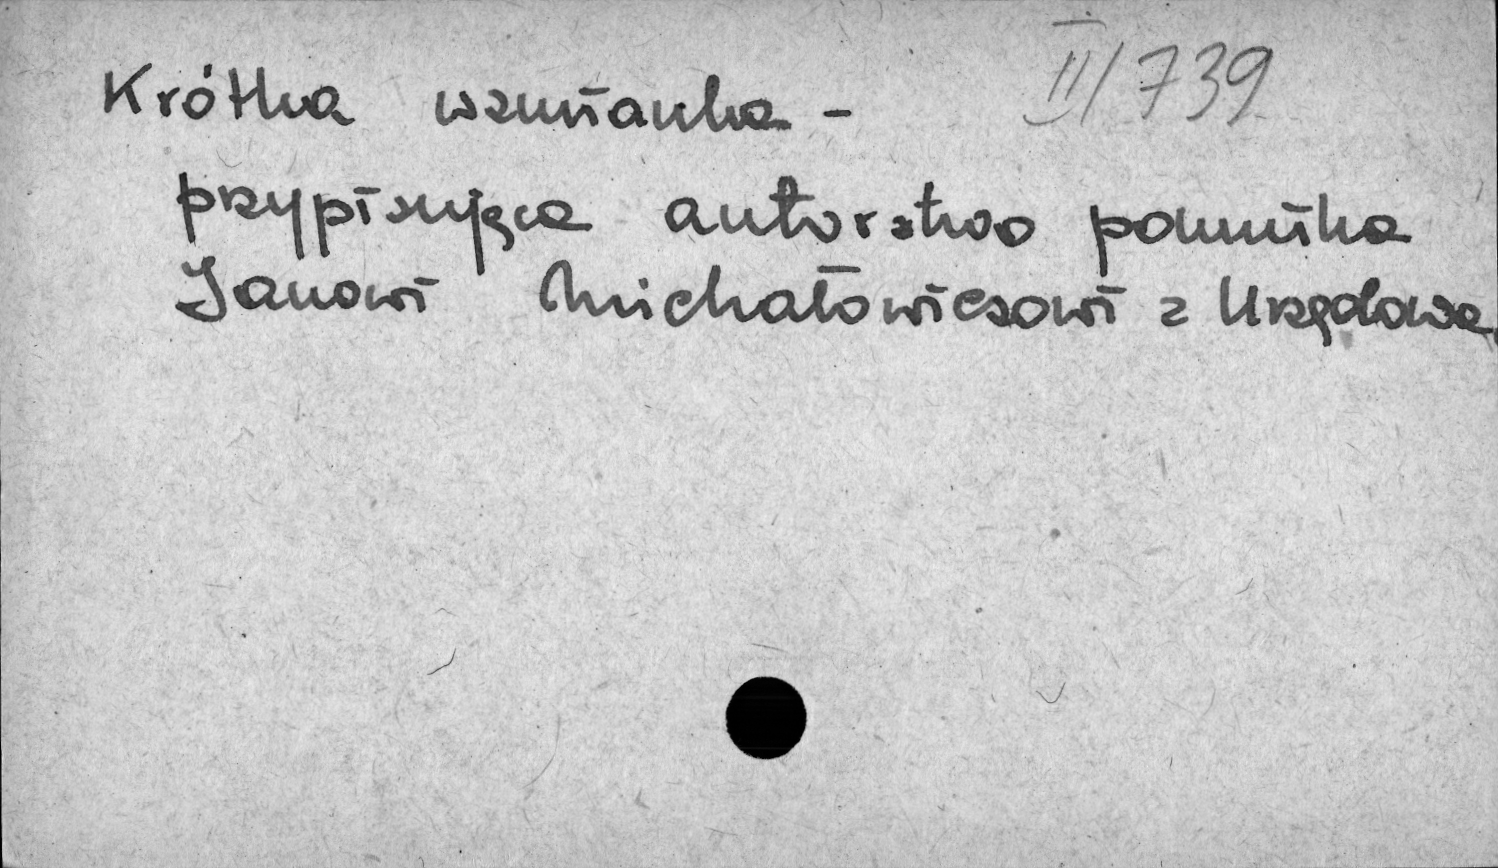 II/739
Krótka wzmianka -
przypisująca autorstwo pomnika
Janowi Michałowiczowi z Urzędowa.